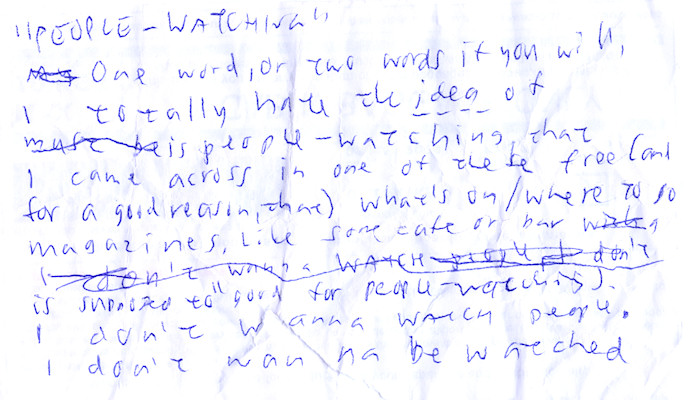 "PEOPLE-WATCHING"
One word, or two words if you will,
I totally hate the idea of
must be is people-watching, that
I came across in one of these free (and
for a good reason, that) what's on/where to go
magazines, like some cafe or bar
I don't wanna WATCH people don't
is supposed to "good for people-watching).
I don't wanna watch people.
I don't wanna be watched